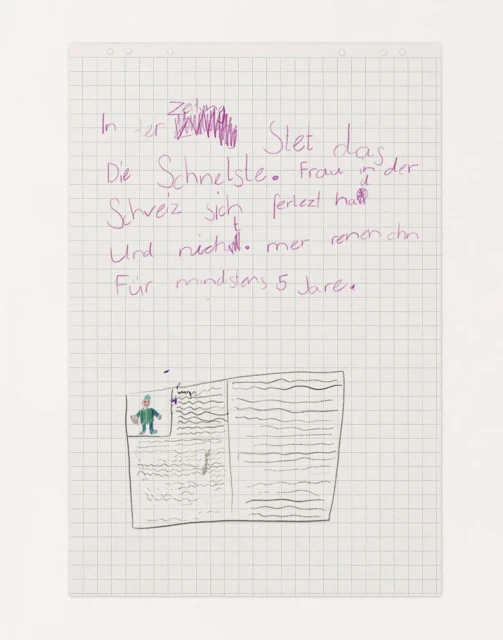 In der Zeitng Stet das
Die Schnelste. Frau in der
Schweiz sich ferlezt had
Und nicht. mer renen
Für mindstens 5 Jare.